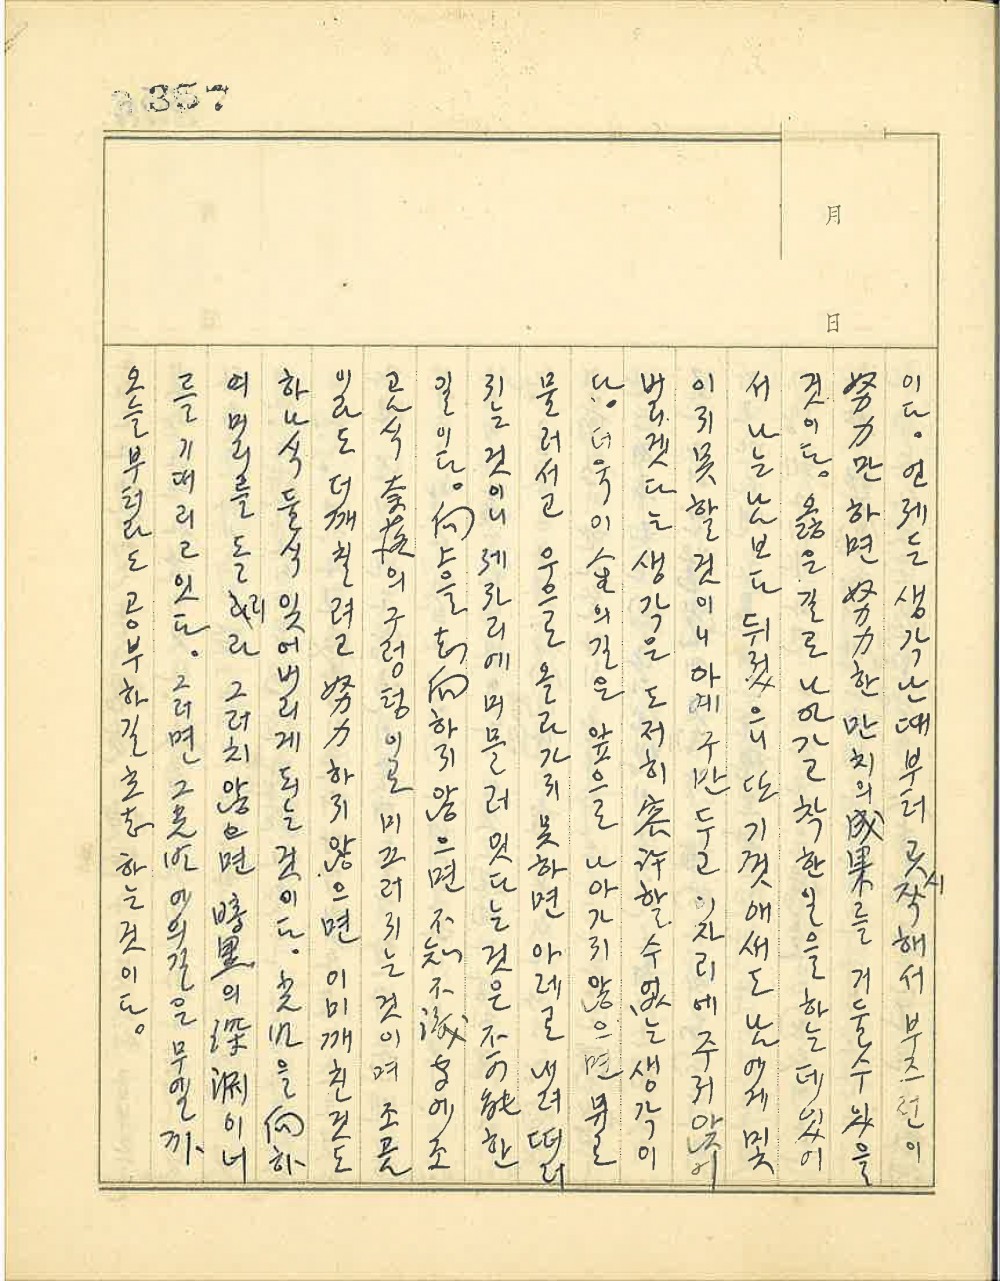 357
月
日
이다. 언제든 생각난 때부터 곳 시작해서 부즈런이
努力만 하면 努力한 만치의 成果를 거둘수 있을
것이다. 옳은 길로 나아가고 착한 일을 하는데 있어
서 나는 남보다 뒤젔으니 또 기껏 애써도 남에게 및
이지 못할 것이니 아예 구만 두고 이 자리에 주저앉어
버리겠다는 생각은 도저히 容許할 수 없는 생각이
다. 더욱이 人生의 길은 앞으로 나아가지 않으면 뒤로
물러서고 웋으로 올라가지 못하면 아레로 내려 떠러
진는 것이니 제자리에 머믈러 있다는 것은 不可能한
일이다. 向上을 志向하지 않으면 不知不識 中에 조
곰식 奈落의 구렁텅이로 미끄러지는 것이며 조곰
일라도 더 깨칠려고 努力하지 않으면 이미 깨친 것도
하나식 둘식 잊어버리게 되는 것이다. 光明을 向하
여 머리를 돌리라 그러치 않으면 暗黑의 深淵이 너
를 기대리고 있다. 그러면 그 光明에의 길은 무엘까
오늘부터라도 공부하길 始하는 것이다.